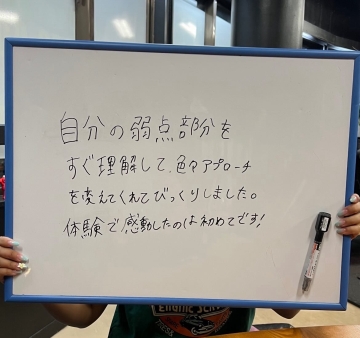 自分の弱点部分を
すぐ理解して、色々アプローチ
を変えてくれてびっくりしました。
体験で感動したのは初めてです!